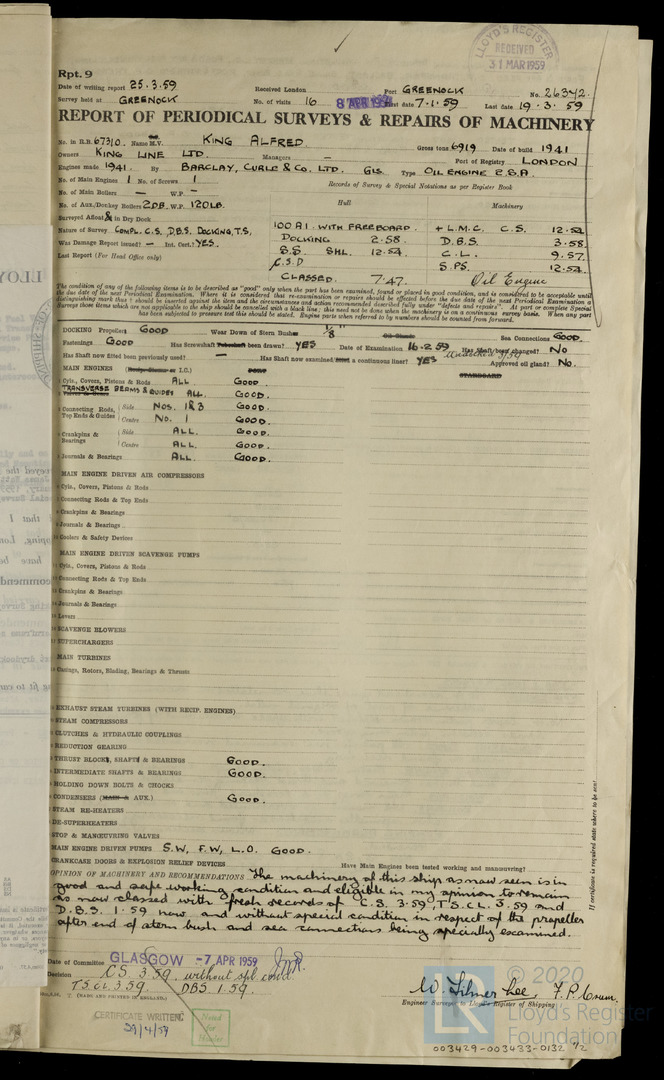 LLOYD'S REGISTER
RECEIVED
31 MAR 1959
Rpt. 9
Date of writing report 25.3.59 Received London Port GREENOCK No. 26342.
Survey held at GREENOCK No. of visits 16 8 APR 1959 First date 7.1.59 Last date 19.3.59
REPORT OF PERIODICAL SURVEYS & REPAIRS OF MACHINERY
No. in R.B. 67310. Name M.V. KING ALFRED. Gross tons 6919 Date of build 1941
Owners KING LINE LTD. Managers — Port of Registry LONDON
Engines made 1941. By BARCLAY, CURLE & CO. LTD. GLS. Type OIL ENGINE 2.S.A.
No. of Main Engines 1 No. of Screws 1
Records of Survey & Special Notations as per Register Book
No. of Main Boilers — W.P. —
No. of Aux./Donkey Boilers 2DB. W.P. 120LB. Hull Machinery
Surveyed Afloat & in Dry Dock
Nature of Survey COMPL. C.S. D.B.S. DOCKING, T.S. 100A1. WITH FREEBOARD. + L.M.C. C.S. 12.54
Was Damage Report issued? — Int. Cert.? YES. DOCKING 2.58. D.B.S. 3.58
Last Report (For Head Office only) S.S. SHL. 12.54. C.L. 9.57
C.S.D S.P.S. 12.54.
CLASSED. 7.47. Oil Engine
The condition of any of the following items is to be described as "good" only when the part has been examined, found or placed in good condition, and is considered to be acceptable until
the due date of the next Periodical Examination. Where it is considered that re-examination or repairs should be effected before the due date of the next Periodical Examination a
distinguishing mark thus † should be inserted against the item and the circumstances and action recommended described fully under "defects and repairs". At part or complete Special
Surveys those items which are not applicable to the ship should be cancelled with a black line; this need not be done when the machinery is on a continuous survey basis. When any part
has been subjected to pressure test this should be stated. Engine parts when referred to by numbers should be counted from forward.
DOCKING Propellers GOOD Wear Down of Stern Bushes 1/8" Oil Glands Sea Connections GOOD.
Fastenings GOOD Has Screwshaft been drawn? YES Date of Examination 16.2.59 Has Shaft been changed? NO
Has Shaft now fitted been previously used? — Has Shaft now examined a continuous liner? YES Approved oil gland? NO.
MAIN ENGINES STARBOARD
Cyls., Covers, Pistons & Rods ALL GOOD.
TRANSVERSE BEAMS & GUIDES ALL. GOOD.
Connecting Rods, Top Ends & Guides Side NOS. 1 & 3 GOOD.
Centre NO. 1 GOOD.
Crankpins & Bearings Side ALL. GOOD.
Centre ALL. GOOD.
Journals & Bearings ALL. GOOD.
MAIN ENGINE DRIVEN AIR COMPRESSORS
Cyls., Covers, Pistons & Rods
Connecting Rods & Top Ends
Crankpins & Bearings
Journals & Bearings
Coolers & Safety Devices
MAIN ENGINE DRIVEN SCAVENGE PUMPS
Cyls., Covers, Pistons & Rods
Connecting Rods & Top Ends
Crankpins & Bearings
Journals & Bearings
Levers
SCAVENGE BLOWERS
SUPERCHARGERS
MAIN TURBINES
Casings, Rotors, Blading, Bearings & Thrusts
EXHAUST STEAM TURBINES (WITH RECIP. ENGINES)
STEAM COMPRESSORS
CLUTCHES & HYDRAULIC COUPLINGS
REDUCTION GEARING
THRUST BLOCKS, SHAFTS & BEARINGS GOOD.
INTERMEDIATE SHAFTS & BEARINGS GOOD.
HOLDING DOWN BOLTS & CHOCKS
CONDENSERS (MAIN & AUX.) GOOD.
STEAM RE-HEATERS
DE-SUPERHEATERS
STOP & MANŒUVRING VALVES
MAIN ENGINE DRIVEN PUMPS S.W, F.W, L.O. GOOD.
CRANKCASE DOORS & EXPLOSION RELIEF DEVICES Have Main Engines been tested working and manœuvring?
OPINION OF MACHINERY AND RECOMMENDATIONS The machinery of this ship as now seen is in
good and safe working condition and eligible in my opinion to remain
as now classed with fresh records of C.S. 3.59, T.S. CL. 3.59 and
D.B.S. 1.59 now and without special condition in respect of the propeller
after end of stern bush and sea connections being specially examined.
If certificate is required state where to be sent
Date of Committee GLASGOW -7 APR 1959
Decision CS. 3.59. without spl. cond.
T.S. CL 3.59. DBS 1.59
(MADE AND PRINTED IN ENGLAND.)
CERTIFICATE WRITTEN.
29/4/59
Noted for Header
Engineer Surveyor to Lloyd's Register of Shipping
LR
© 2020
Lloyd's Register
Foundation
003429-003433-0132 1/2